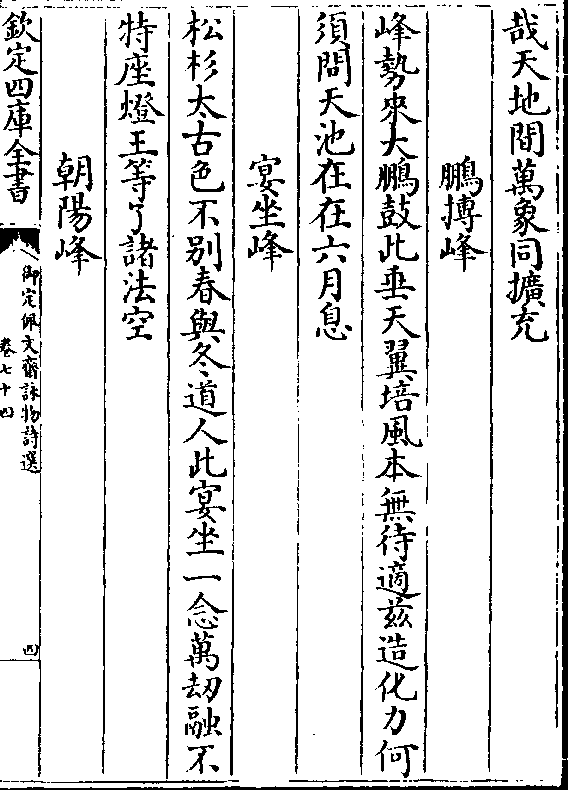 哉天地間萬象同擴充
鵬摶峰
峰勢來大鵬鼓此垂天翼培風本無待適茲造化力何
須問天池在在六月息
宴坐峰
松杉太古色不别春與冬道人此宴坐一念萬刼融不
特座燈王等了諸法空
朝陽峰
欽定四庫全書
御定佩文齋詠物詩選
卷七十四
四